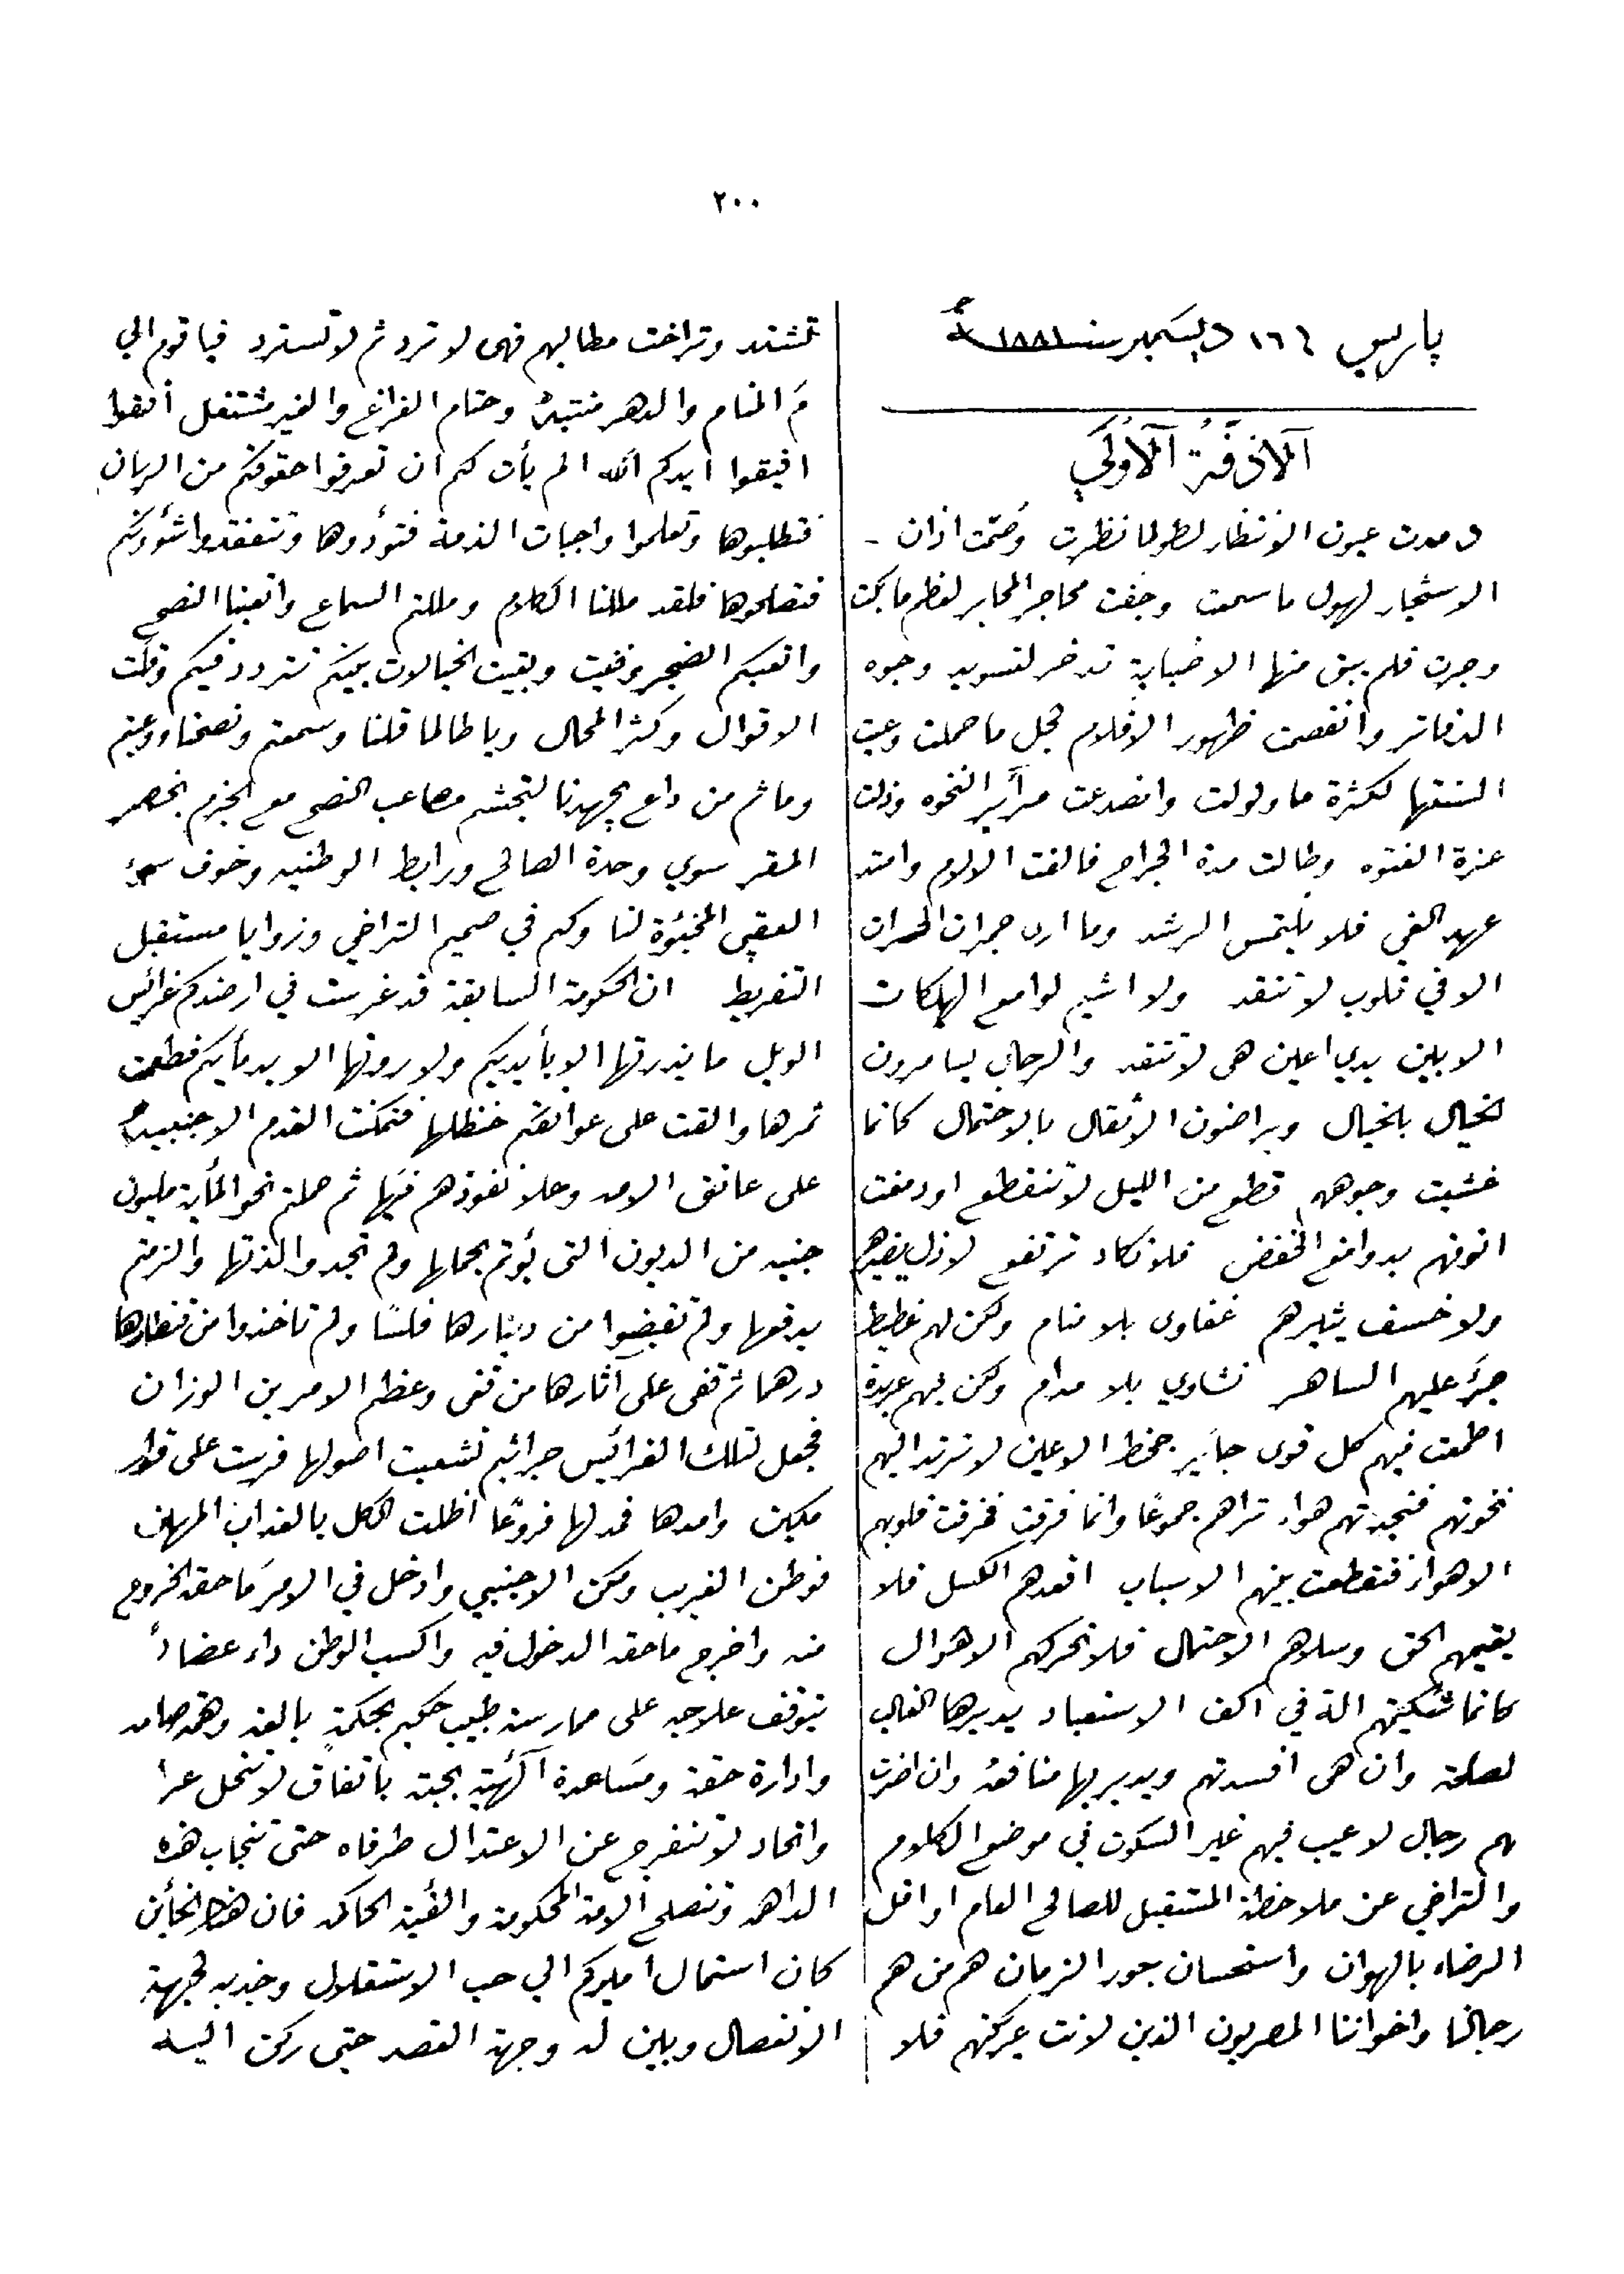 ٢٠٠
باريس ١٦ ديسمبر سنة ١٨٨١
الازفة الاولى
رمدت عيون الانتظار لطول ما نظرت وصمت اذان
الاستخبار لهول ما سمعت وجفت محاجر المحابر لعظم ما بكت
وجرت فلم يبق منها الا صبابة تدخر لتسويد وجوه
الدفاتر وانقصمت ظهور الاقلام لجل ما حملت وعيت
السنتها لكثرة ما ولولت وانصدعت مرآير النخوه وذلت
عزة الفتوه وطالت مدة الجراح فالفت الالام وامتد
عهد الغي فلا يلتمس الرشد وما ارى جمرات الحسرات
الا في قلوب لا تتقد ولا اشيم لوامع الهلكات
الا بين يدي اعين هي لا تنقد والرجال يسامرون
الخيال بالخيال ويراضون الأثقال بالاحتمال كانما
غشيت وجوههم قطع من الليل لا تنقطع او دمغت
انوفهم بدوامغ الخفض فلا تكاد ترتفع لا ذل يغيرهم
ولا خسف يثيرهم غفاوى بلا منام ولكن لهم غطيط
جرَّ عليهم الساهر نشاوي بلا مدام ولكن بهم عربدة
اطمعت فيهم كل قوى جآير جحظ الاعين لا ترتد اليهم
نخوتهم فنجدتهم هواء تراهم جموعًا وانما فرقت فخرقت قلوبهم
الاهواء فتقطعت بينهم الاسباب اقعدهم الكسل فلا
يقيمهم الحق وسلاهم الاحتمال فلا تحركهم الاهوال
كانما شكيمتهم الة في اكف الاستعباد يديرها الغالب
لصلحه وان هى افسدتهم ويدير بها منافعه وان اضرت
بهم رجال لا عيب فيهم غير السكوت في موضع الكلام
والتراضي عن ملاحظة المستقبل للصالح العام او اقل
الرضاء بالهوان واستحسان جور الزمان هم من هم
رجالنا واخواننا المصريون الذين لانت عريكتهم فلا
تشتد وتراخت مطالبهم فهى لا ترد ثم لا تسترد فيا قوم الي
مَ المنام والدهر منتبه وحتام الفراغ والغير مشتغل أفقوا
افيقوا أيدكم الله الم يأن لكم ان تعرفوا حقوقكم من الزمان
فتطلبوها وتعلموا واجبات الذمة فتؤدوها وتتفقدوا شئونكم
فتصلحوها فلقد مللنا الكلام ومللتم السماع واتعبنا النصح
واتعبكم الضجر وفنيت وبقيت الخيالات بينكم تتردد فيكم وقلت
الاقوال وكثر المحال ويا طالما قلنا وسمعتم ونصحنا ووعيتم
وما ثم من داع يجهدنا لتجشم مصاعب النصح مع الجزم بخصر
المقر سوي وحدة الصالح ورابط الوطنيه وخوف سوء
العقبى المخبوة لنا ولكم في صميم التراخي وزوايا مستقبل
التفريط ان الحكومة السابقة قد غرست في ارضكم غرائس
الوبل ما بذرتها الا بأيديكم ولا روتها الا بدمأيكم فطعمت
ثمرها والقت على عواتقكم حنظلها فتمكنت القدم الاجنبيه
على عاتق الامه وعلا نفوذهم فيها ثم حملتم نحو المأية مليون
جنيه من الديون التى بؤتم بحملها ولم تجدوا لذتها والزمتم
بدفعها ولم تقبضوا من دينارها فلسًا ولم تاخذوا من قنطارها
درهما ثم قفى على آثارها من قفى وعظم الامرين الوزان
فجعل لتلك الغرائس جراثيم تشعبت اصولها فرست على قرار
مكين وامدها فمد لها فروعًا اظلت الكل بالعذاب المهين
فوطن الغريب ومكن الاجنبي وادخل في الامر ما حقه الخروج
منه واخرج ما حقه الدخول فيه واكسب الوطن داء عضالاً
يتوقف علاجه على ممارسة طبيب حكيم بحكمةٍ بالغه وهمه صامه
وادارة حقة ومساعدة آلهية بحتة باتفاق لا تنحل عرا
واتحاد لا تنفرج عن الاعتدال طرفاه حتى تنجاب هذه
الداهمه وتنصلح الامة المحكومة والفئية الحاكمه فان هذا الخائن
كان استمال اميركم الي حب الاستقلال وجذبه لجهة
الانفصال وبين له وجهة القصد حتى ركن اليه